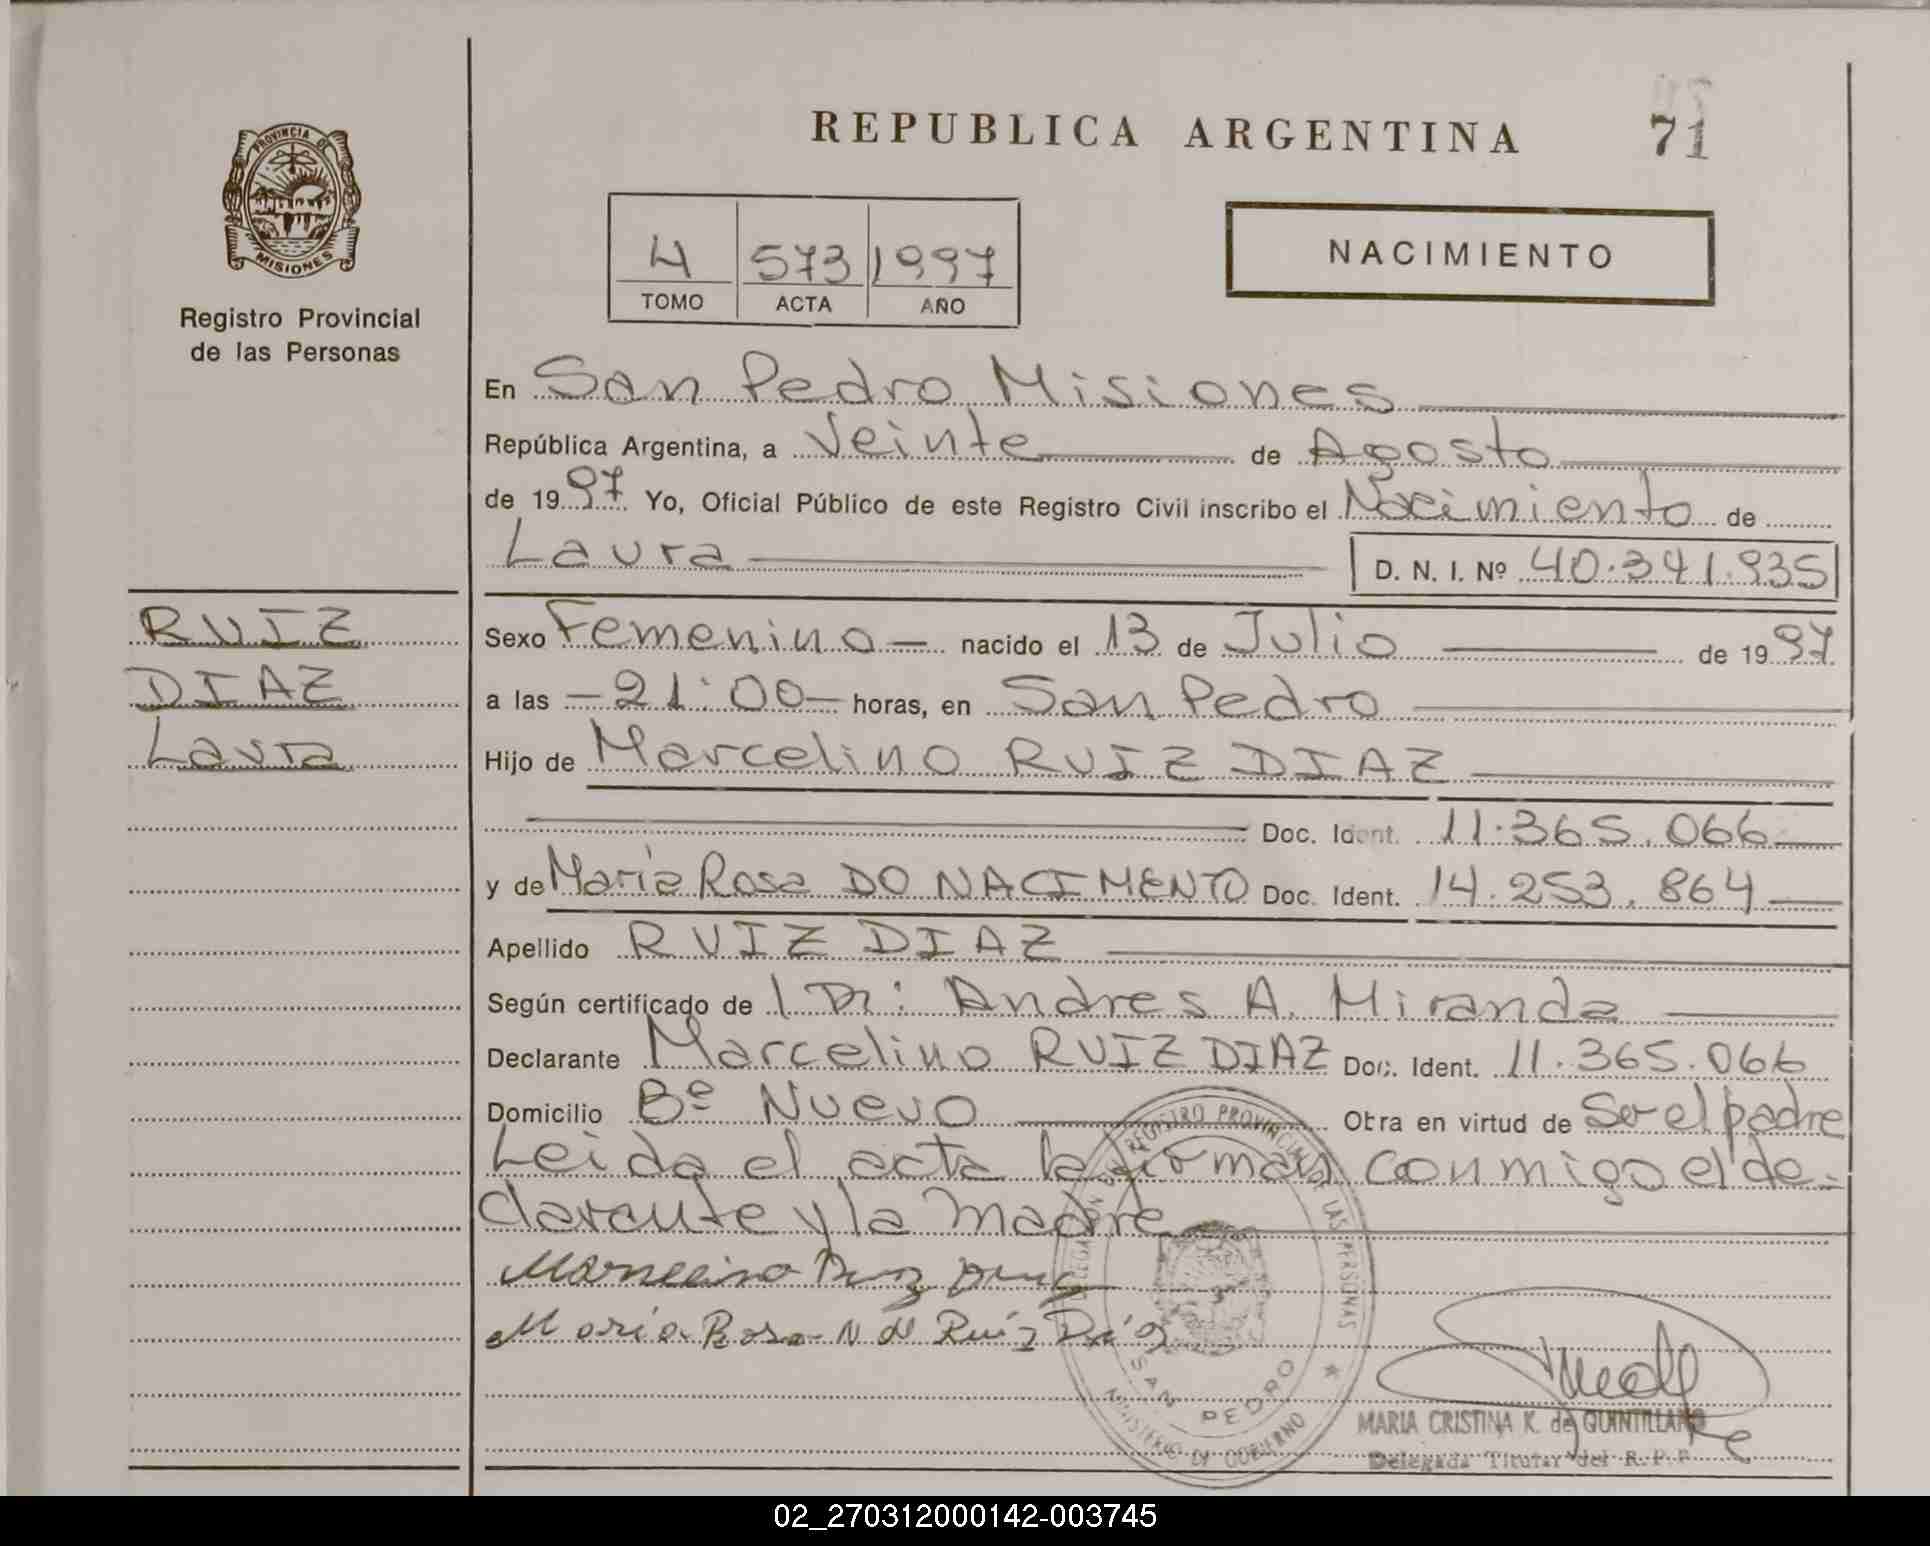 REPUBLICA ARGENTINA
71
PROVINCIA DE
MISIONES
Registro Provincial
de las Personas
4 573 1997
TOMO ACTA AÑO
NACIMIENTO
En San Pedro Misiones
República Argentina, a Veinte de Agosto
de 1997 Yo, Oficial Público de este Registro Civil inscribo el Nacimiento de
Laura D. N. I. Nº 40.341.935
RUIZ
DIAZ
Laura
Sexo Femenino nacido el 13 de Julio de 1997
a las 21:00 horas, en San Pedro
Hijo de Marcelino RUIZ DIAZ
Doc. Ident. 11.365.066
y de María Rosa DO NACIMENTO Doc. Ident. 14.253.864
Apellido RUIZ DIAZ
Según certificado de Dr: Andres A. Miranda
Declarante Marcelino RUIZ DIAZ Doc. Ident. 11.365.066
Domicilio Bº Nuevo Obra en virtud de Ser el padre
Leida el acta la firman conmigo el de-
clarante y la madre
Marcelino Ruiz Diaz
María Rosa N d Ruíz Díaz
REGISTRO PROVINCIAL DE LAS PERSONAS
SAN PEDRO
MINISTERIO DE GOBIERNO
MARIA CRISTINA K. de QUINTILLAN
Delegada Titular del R. P. P.
02_270312000142-003745